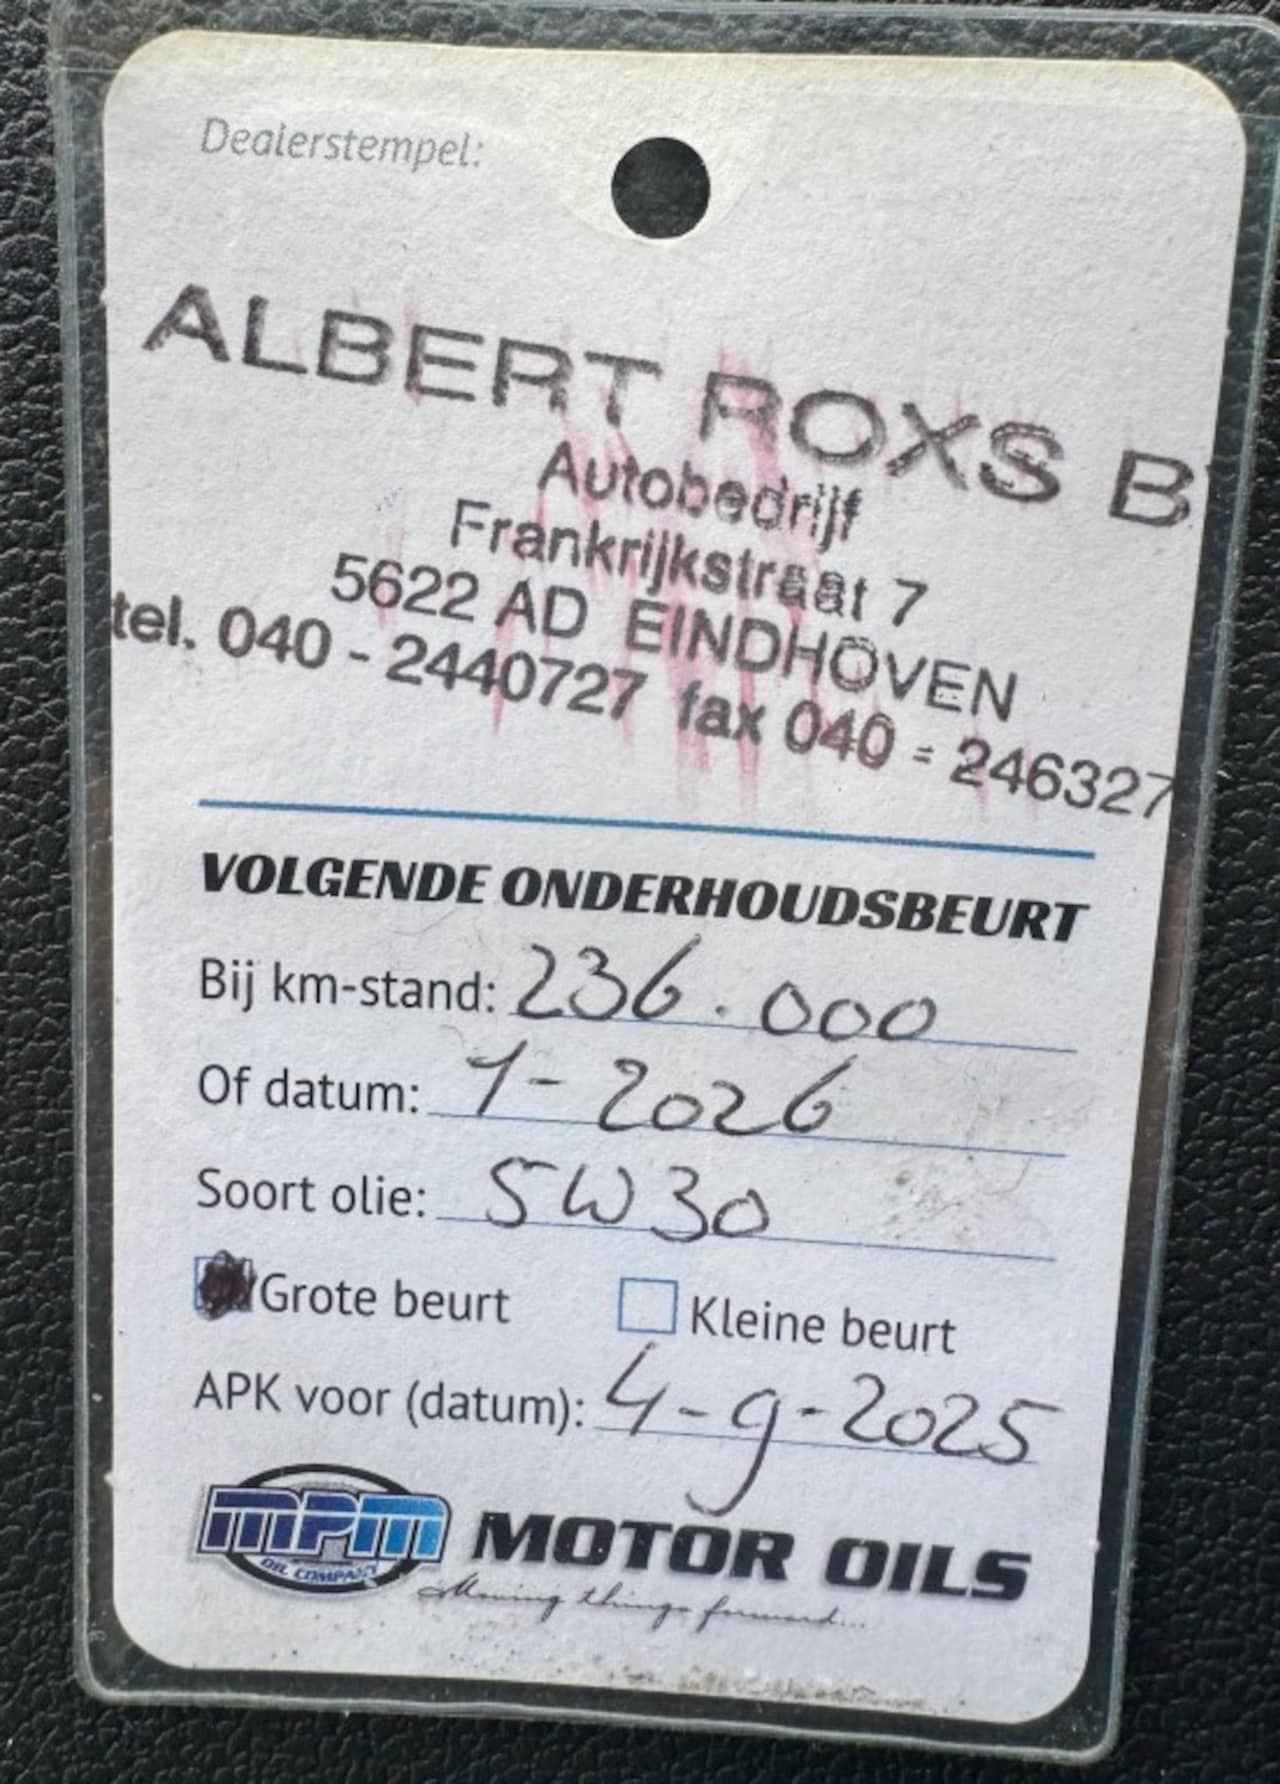 Dealerstempel:
ALBERT ROXS B
Autobedrijf
Frankrijkstraat 7
5622 AD EINDHOVEN
tel. 040 - 2440727 fax 040 - 246327
VOLGENDE ONDERHOUDSBEURT
Bij km-stand: 236.000
Of datum: 1-2026
Soort olie: 5W30
Grote beurt Kleine beurt
APK voor (datum): 4-9-2025
mpm MOTOR OILS
OIL COMPANY
Moving things forward...